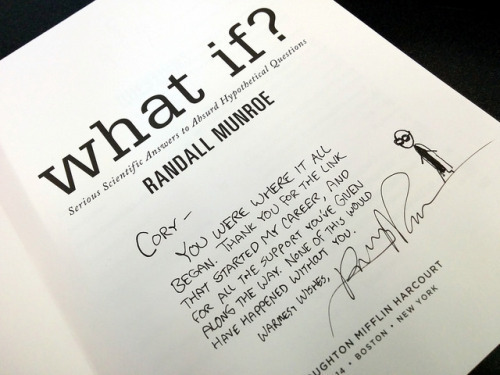 what if?
Serious Scientific Answers to Absurd Hypothetical Questions
RANDALL MUNROE
CORY—
YOU WERE WHERE IT ALL
BEGAN. THANK YOU FOR THE LINK
THAT STARTED MY CAREER, AND
FOR ALL THE SUPPORT YOU'VE GIVEN
ALONG THE WAY. NONE OF THIS WOULD
HAVE HAPPENED WITHOUT YOU.
WARMEST WISHES,
UGHTON MIFFLIN HARCOURT
14 • BOSTON • NEW YORK